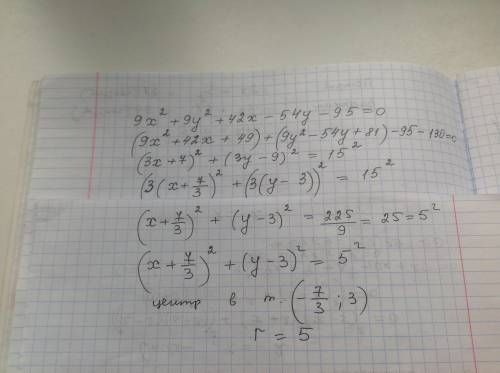 9x² + 9y² + 42x - 54y - 95 = 0
(9x² + 42x + 49) + (9y² - 54y + 81) - 95 - 130 = 0
(3x + 7)² + (3y - 9)² = 15²
(3(x + 7/3)² + (3(y - 3))² = 15²
(x + 7/3)² + (y - 3)² = 225/9 = 25 = 5²
(x + 7/3)² + (y - 3)² = 5²
центр в т. (-7/3 ; 3)
r = 5